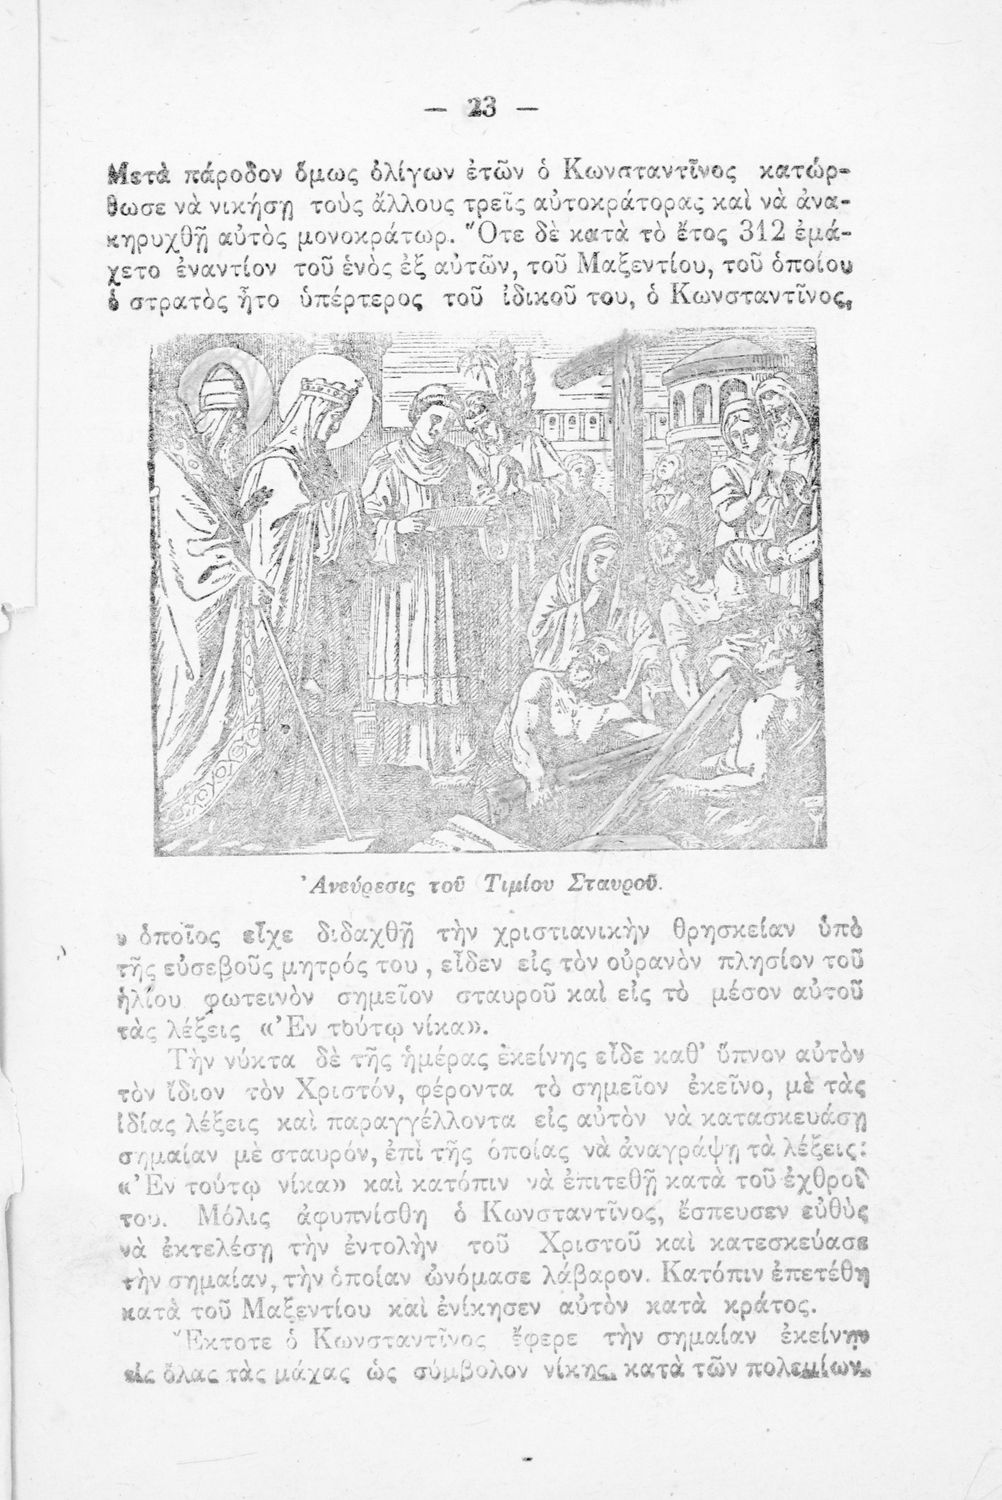 — 23 —
Μετὰ πάροδον ὅμως ὀλίγων ἐτῶν ὁ Κωνσταντῖνος κατώρ-
θωσε νὰ νικήσῃ τοὺς ἄλλους τρεῖς αὐτοκράτορας καὶ νὰ ἀνα-
κηρυχθῇ αὐτὸς μονοκράτωρ. Ὅτε δὲ κατὰ τὸ ἔτος 312 ἐμά-
χετο ἐναντίον τοῦ ἑνὸς ἐξ αὐτῶν, τοῦ Μαξεντίου, τοῦ ὁποίου
ὁ στρατὸς ἦτο ὑπέρτερος τοῦ ἰδικοῦ του, ὁ Κωνσταντῖνος,
Ἀνεύρεσις τοῦ Τιμίου Σταυροῦ.
ὁ ὁποῖος εἶχε διδαχθῇ τὴν χριστιανικὴν θρησκείαν ὑπὸ
τῆς εὐσεβοῦς μητρός του, εἶδεν εἰς τὸν οὐρανὸν πλησίον τοῦ
ἡλίου φωτεινὸν σημεῖον σταυροῦ καὶ εἰς τὸ μέσον αὐτοῦ
τὰς λέξεις «Ἐν τούτῳ νίκα».
Τὴν νύκτα δὲ τῆς ἡμέρας ἐκείνης εἶδε καθ' ὕπνον αὐτὸν
τὸν ἴδιον τὸν Χριστόν, φέροντα τὸ σημεῖον ἐκεῖνο, μὲ τὰς
ἰδίας λέξεις καὶ παραγγέλλοντα εἰς αὐτὸν νὰ κατασκευάσῃ
σημαίαν μὲ σταυρόν, ἐπὶ τῆς ὁποίας νὰ ἀναγράψῃ τὰ λέξεις:
«Ἐν τούτῳ νίκα» καὶ κατόπιν νὰ ἐπιτεθῇ κατὰ τοῦ ἐχθροῦ
του. Μόλις ἀφυπνίσθη ὁ Κωνσταντῖνος, ἔσπευσεν εὐθὺς
νὰ ἐκτελέσῃ τὴν ἐντολὴν τοῦ Χριστοῦ καὶ κατεσκεύασε
τὴν σημαίαν, τὴν ὁποίαν ὠνόμασε λάβαρον. Κατόπιν ἐπετέθη
κατὰ τοῦ Μαξεντίου καὶ ἐνίκησεν αὐτὸν κατὰ κράτος.
Ἔκτοτε ὁ Κωνσταντῖνος ἔφερε τὴν σημαίαν ἐκείνην
εἰς ὅλας τὰς μάχας ὡς σύμβολον νίκης κατὰ τῶν πολεμίων.